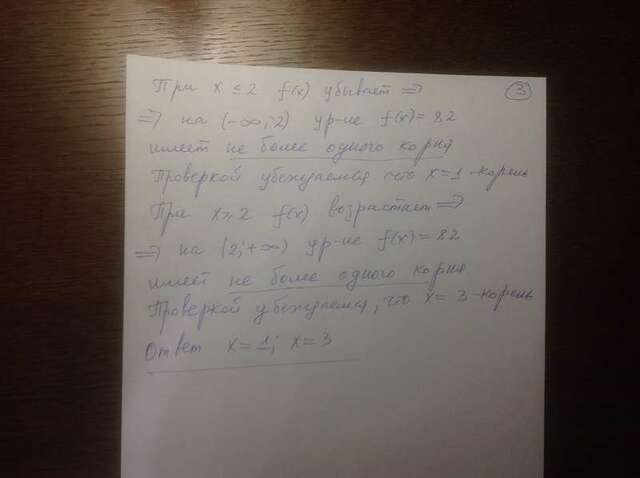 При x ≤ 2 f(x) убывает ⇒ 3
⇒ на (-∞; 2) ур-ие f(x) = 82
имеет не более одного корня
Проверкой убеждаемся что x = 1 - корень
При x ≥ 2 f(x) возрастает ⇒
⇒ на (2; +∞) ур-ие f(x) = 82
имеет не более одного корня
Проверкой убеждаемся, что x = 3 - корень
Ответ x = 1; x = 3